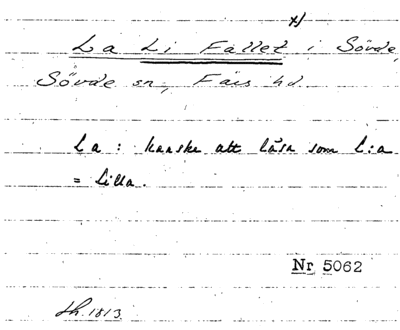 x)
La Li Fallet i Sövde,
Sövde sn, Färs hd.
La : kanske att läsa som L:a
= Lilla.
Nr 5062
1813